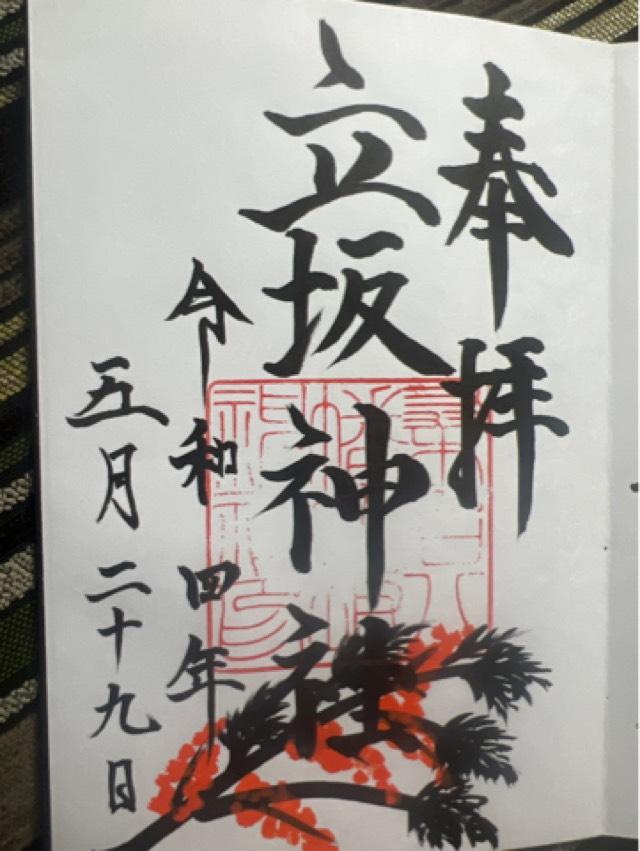 奉拝
立坂神社
令和四年
五月二十九日